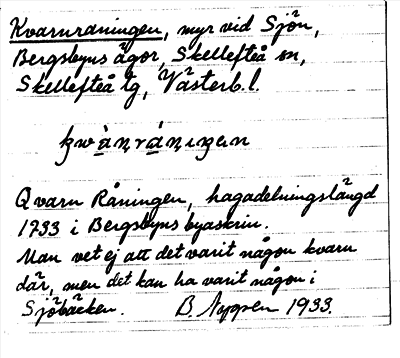 Kvarnraningen, myr vid Sjön,
Bergsbyns ägor, Skellefteå sn,
Skellefteå tg, Västerb. l.
Qvarn Råningen, hagadelningslängd
1733 i Bergsbyns byaskrin.
Man vet ej att det varit någon kvarn
där, men det kan ha varit någon i
Sjöbäcken. B. Nyssen 1933.